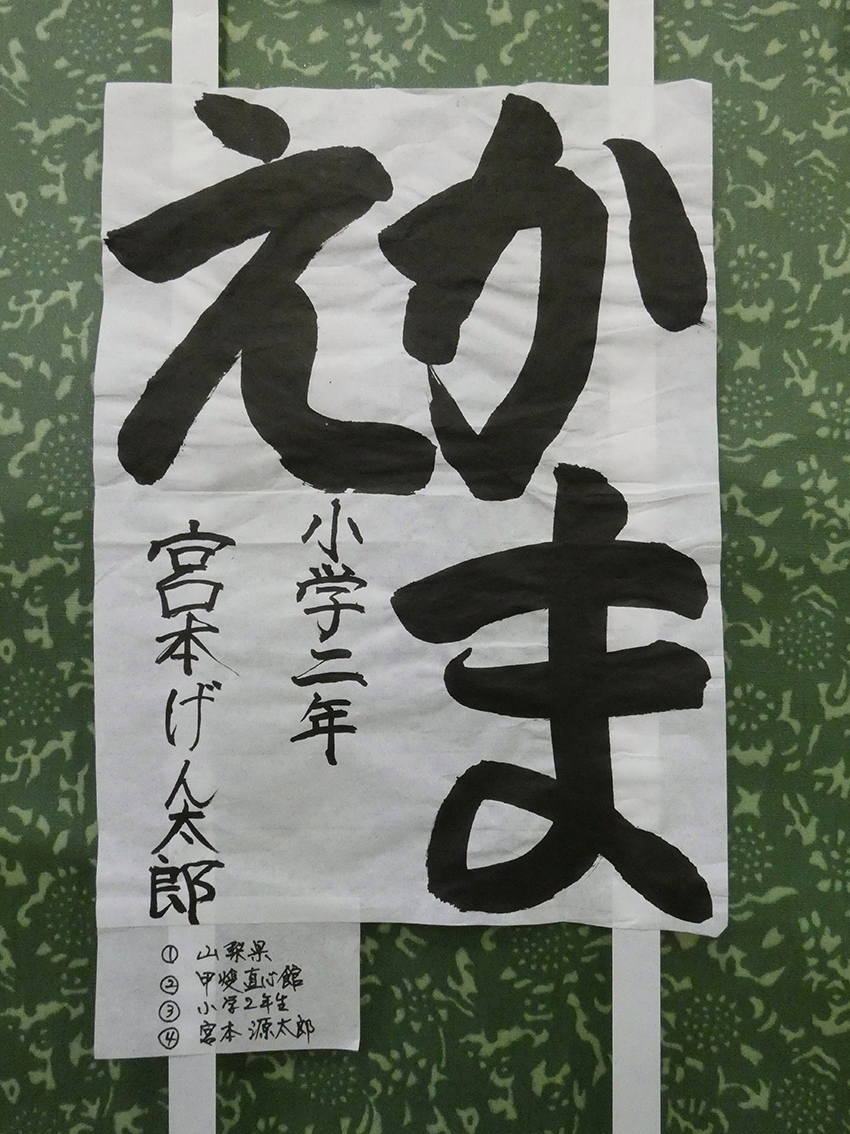 かまえ
小学二年
宮本げん太郎
① 山梨県
② 甲斐直心館
③ 小学2年生
④ 宮本源太郎